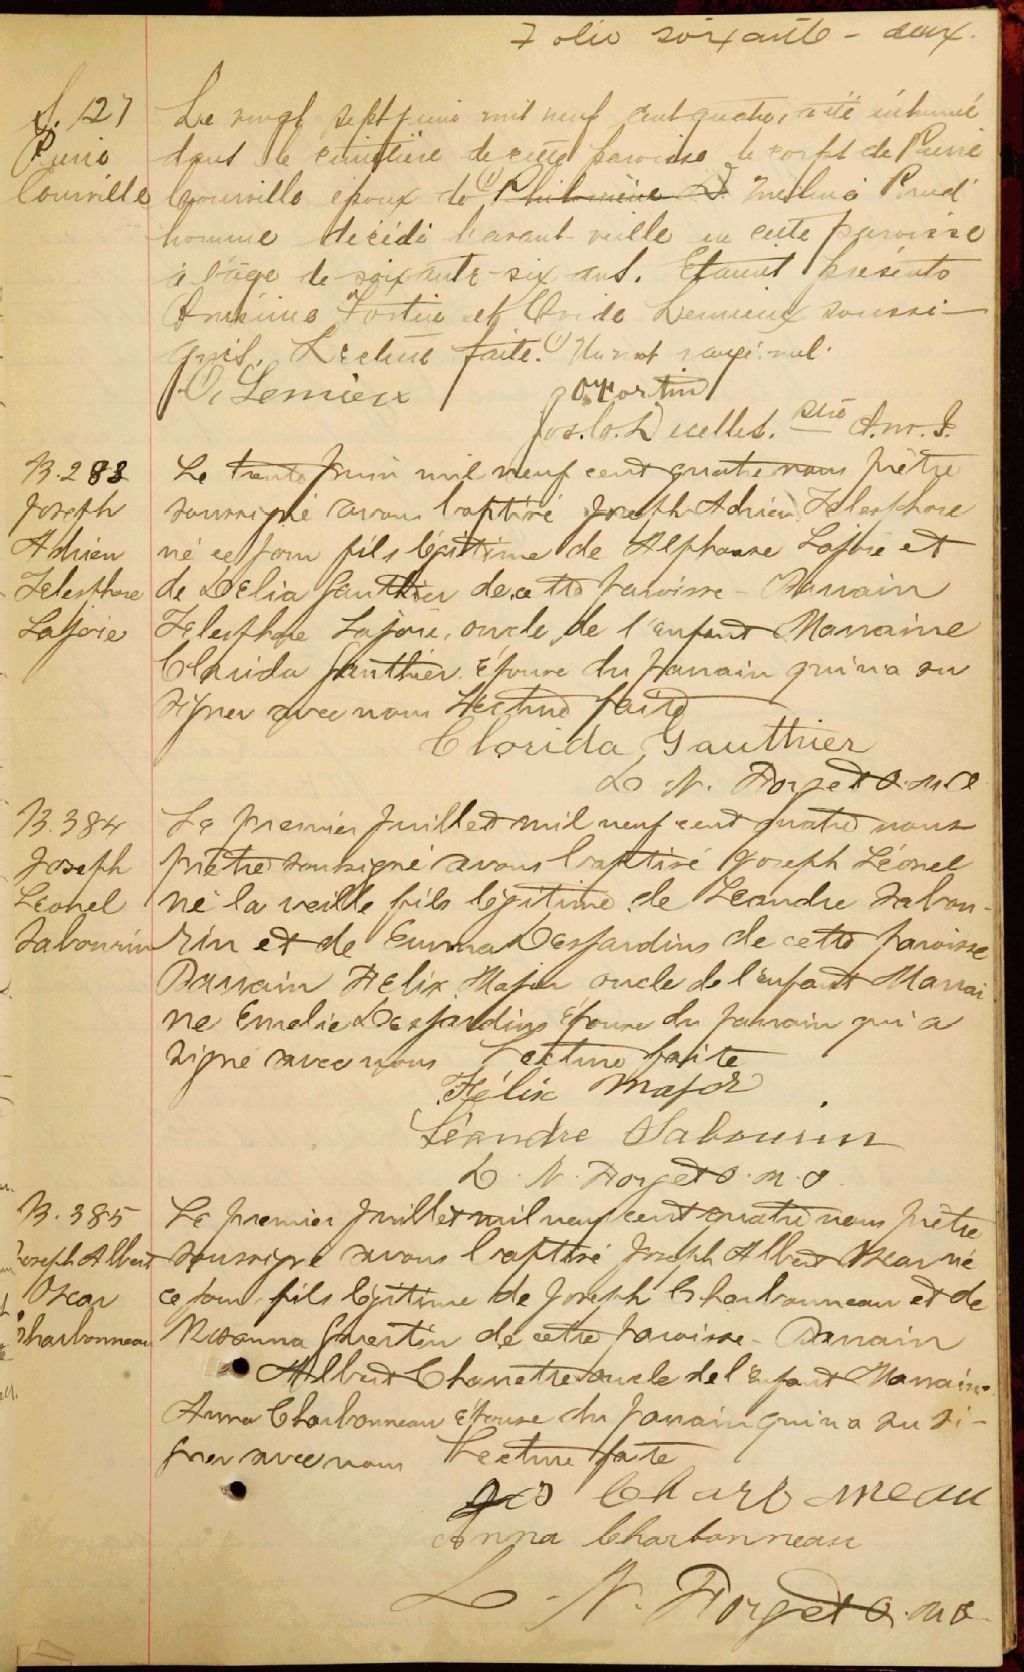 Folio soixante-deux.
S. 127
Pierre
Courville
Le vingt sept juin mil neuf cent quatre, a été inhumé
dans le cimetière de cette paroisse le corps de Pierre
Courville époux de (1) Philomène D. Mélina Prud'
homme décédé l'avant-veille en cette paroisse
à l'âge de soixante-six ans. Etaient présents
Onésime Fortin et Ovide Lemieux soussi-
gnés. Lecture faite. (1) Un mot rayé nul.
O. Lemieux
O Fortin
Jos. Decelles. ptre O.M.I.
B. 283
Joseph
Adrien
Telesphore
Lajoie
Le trente juin mil neuf cent quatre nous prêtre
soussigné avons baptisé Joseph Adrien Telesphore
né ce jour fils légitime de Alphonse Lajoie et
de Délia Gauthier de cette paroisse - Parrain
Telesphore Lajoie, oncle de l'enfant Marraine
Clorida Gauthier épouse du parrain qui n'a su
signer avec nous Lecture faite
Clorida Gauthier
L. N. Forget O.M.I.
B. 384
Joseph
Léonel
Sabourin
Le premier juillet mil neuf cent quatre nous
prêtre soussigné avons baptisé Joseph Léonel
né la veille fils légitime de Léandre Sabou-
rin et de Emma Desjardins de cette paroisse
Parrain Félix Major oncle de l'enfant Marrai
ne Emelie Desjardins épouse du parrain qui a
signé avec nous Lecture faite
Félix Major
Léandre Sabourin
L. N. Forget O.M.I.
B. 385
Joseph Albert
Oscar
Charbonneau
Le premier juillet mil neuf cent quatre nous prêtre
soussigné avons baptisé Joseph Albert Oscar né
ce jour fils légitime de Joseph Charbonneau et de
Rosanna Guertin de cette paroisse - Parrain
Albert Charette oncle de l'enfant Marraine
Anna Charbonneau épouse du parrain qui n'a su si-
gner avec nous Lecture faite
Jos Charbonneau
Anna Charbonneau
L. N. Forget O.M.I.